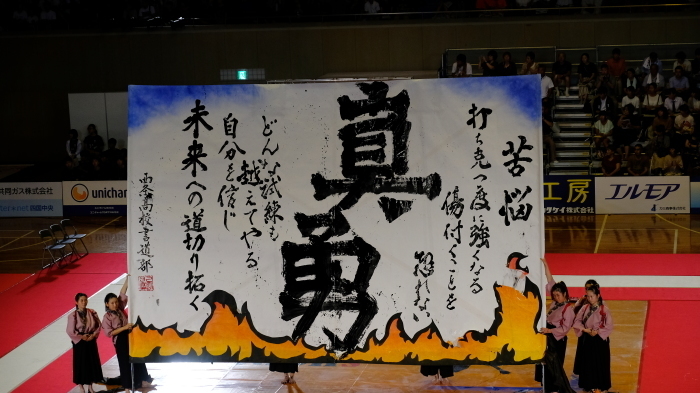 苦悩
打ち克つ度に強くなる
傷付くことを
恐れない
真勇
どんな試練も
越えてやる
自分を信じ
未来への道切り拓く
西条高校書道部
共同ガス株式会社
unicharm
工房
タケイ株式会社
エルモア